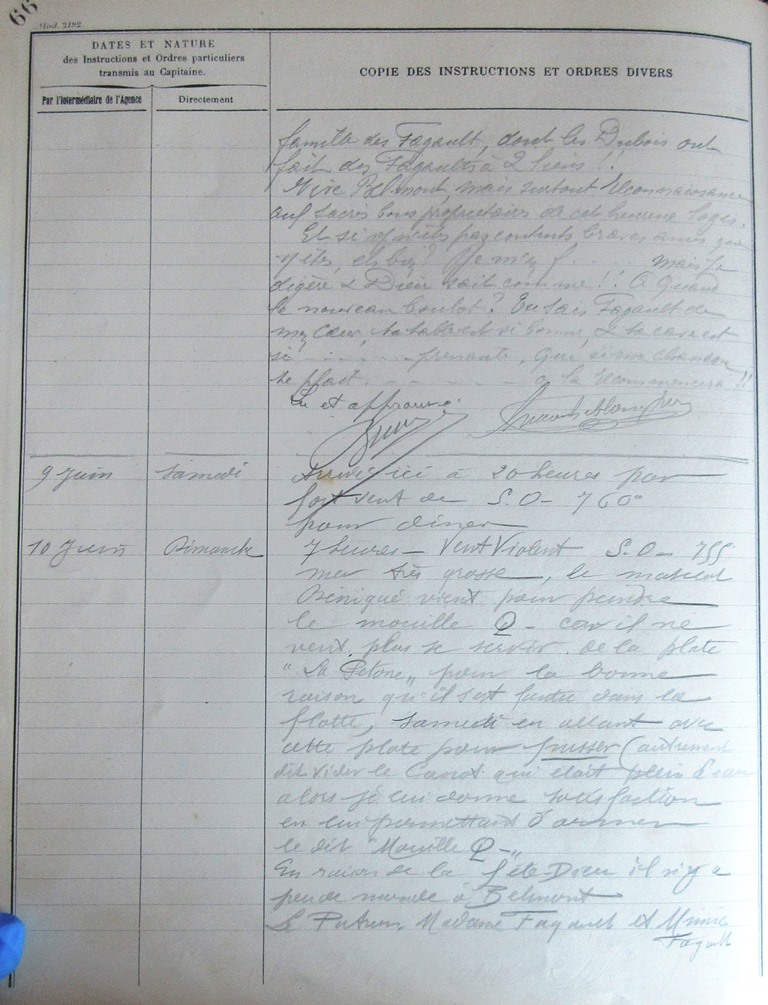 66
Mod. 2192.
DATES ET NATURE
des Instructions et Ordres particuliers
transmis au Capitaine.
COPIE DES INSTRUCTIONS ET ORDRES DIVERS
Par l'Intermédiaire de l'Agence
Directement
famille des Fagault, dont les Dubois ont
fait des Fagaults à 2 liens !!
Vive Belmont, mais surtout Reconnaissance
aux sacrés bons propriétaires de cet heureux logis.
Et si n'êtes pas contents braves amis que
eh ben? Je m'en f........ mais je
digère & Dieu sait comme !! A Quand
le nouveau boulot? Tu sais Fagault de
mon Cœur, ta table est si bonne, & ta cave est
si ........ prenante, que
te plait ........ à la Recommencera !!
Lu et approuvé.
9 Juin Samedi Arrivé ici à 20 heures par
fort vent de S.O - 760
pour diner
10 Juin Dimanche 7 heures - Vent Violent S.O - 755
mer très grosse, le matelot
Béniqué vient pour peindre
le mouille Q - car il ne
veut plus se servir de la plate
"La Petone" pour la bonne
raison qu'il s'est foutu dans la
flotte, samedi en allant avec
cette plate pour puisser (autrement
dit vider le Canot qui était plein d'eau
alors je lui donne satisfaction
en lui permettant d'armer
le dit "Mouille Q -"
En raison de la fête-Dieu il n'y a
peu de monde à Belmont
Le Patron, Madame Fagault et Mimi
Fagault